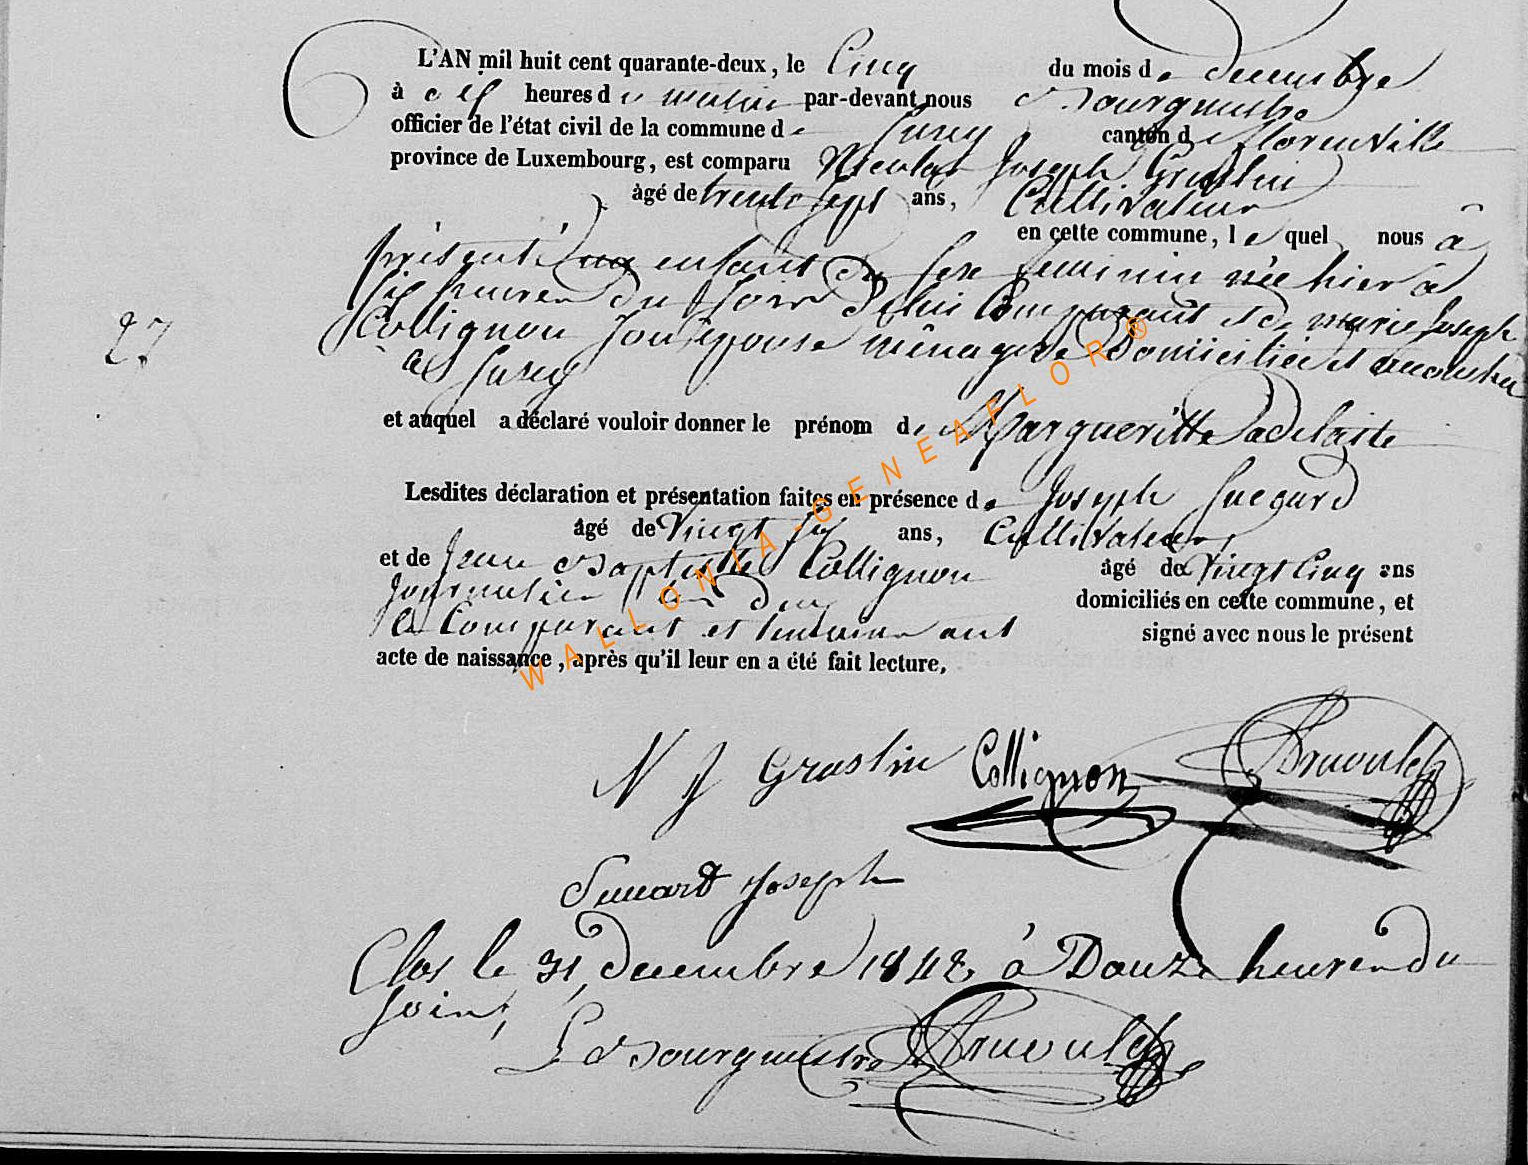 L'AN mil huit cent quarante-deux, le Cinq du mois de decembre
à dix heures du matin par-devant nous Bourgmestre
officier de l'état civil de la commune de canton de florenville
province de Luxembourg, est comparu Nicolas Joseph Groslin
âgé de trente sept ans, Cultivateur
en cette commune, le quel nous à
présenté un enfant du sexe feminin née hier à
six heures du soir de lui Comparant et de marie Joseph
Collignon son épouse ménagere domiciliée et
à
et auquel a déclaré vouloir donner le prénom de Margueritte adelaite
27
Lesdites déclaration et présentation faites en présence de Joseph
âgé de Vingt six ans, Cultivateur
et de Jean Baptiste Collignon âgé de Vingt Cinq ans
Journalier domiciliés en cette commune, et
le Comparant et temoins ont signé avec nous le présent
acte de naissance, après qu'il leur en a été fait lecture,
N J Groslin Collignon Arnould
Joseph
Clos le 31 decembre 1842 à Douze heures du
soir,
Le Bourgmestre Arnould
WALLONIA-GENEAFLOR®